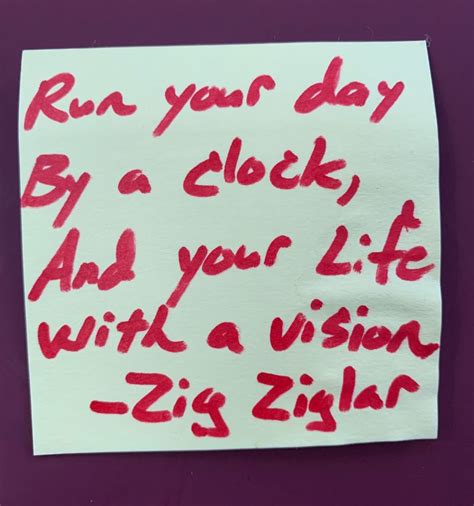 Run your day
By a clock,
And your Life
with a vision
-Zig Ziglar